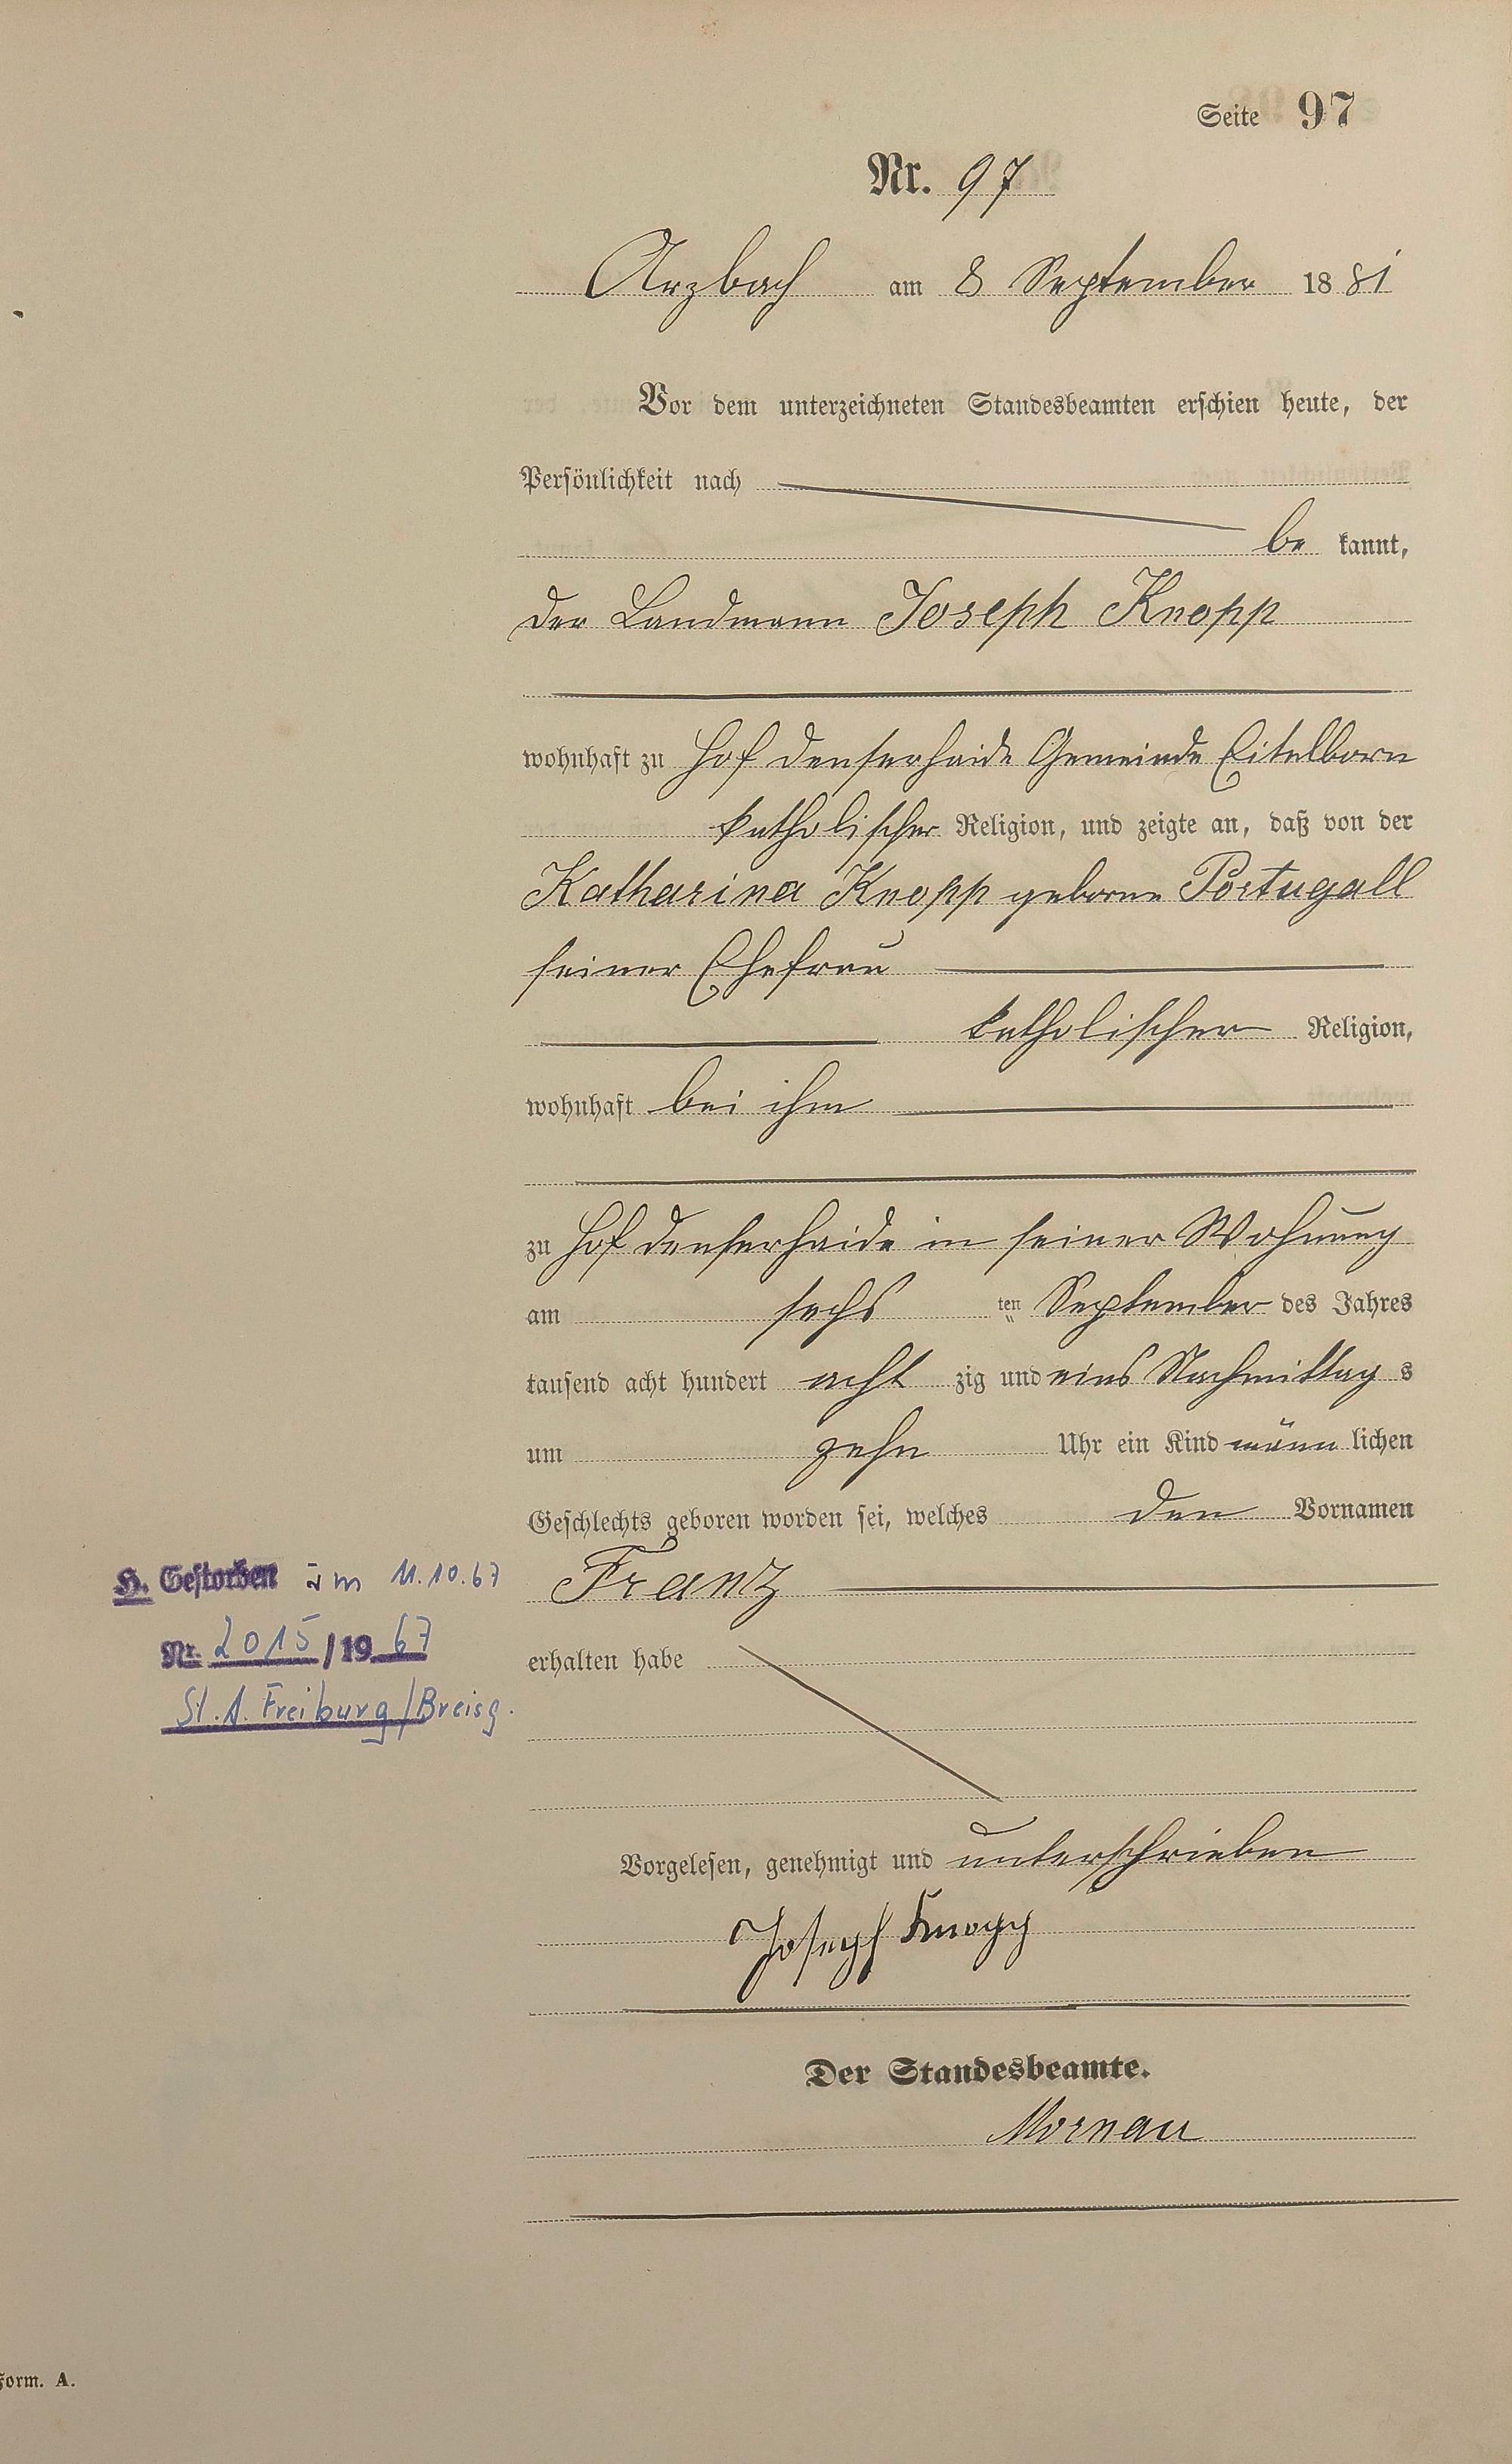 Seite 97
Nr. 97
Arzbach am 8 September 1881
Vor dem unterzeichneten Standesbeamten erschien heute, der
Persönlichkeit nach
be kannt,
der Landmann Joseph Knopp
wohnhaft zu Hof Denserhaide Gemeinde Eitelborn
katholischer Religion, und zeigte an, daß von der
Katharina Knopp geborne Portugall
seiner Ehefrau
katholischer Religion,
wohnhaft bei ihm
zu Hof Denserhaide in seiner Wohnung
am sechs ten September des Jahres
tausend acht hundert acht zig und eins Nachmittag s
um zehn Uhr ein Kind männ lichen
Geschlechts geboren worden sei, welches den Vornamen
Franz
erhalten habe
H. Gestorben am 11.10.67
Nr. 2015/1967
St. A. Freiburg/Breisg.
Vorgelesen, genehmigt und unterschrieben
Joseph Knopp
Der Standesbeamte.
Mornau
Form. A.